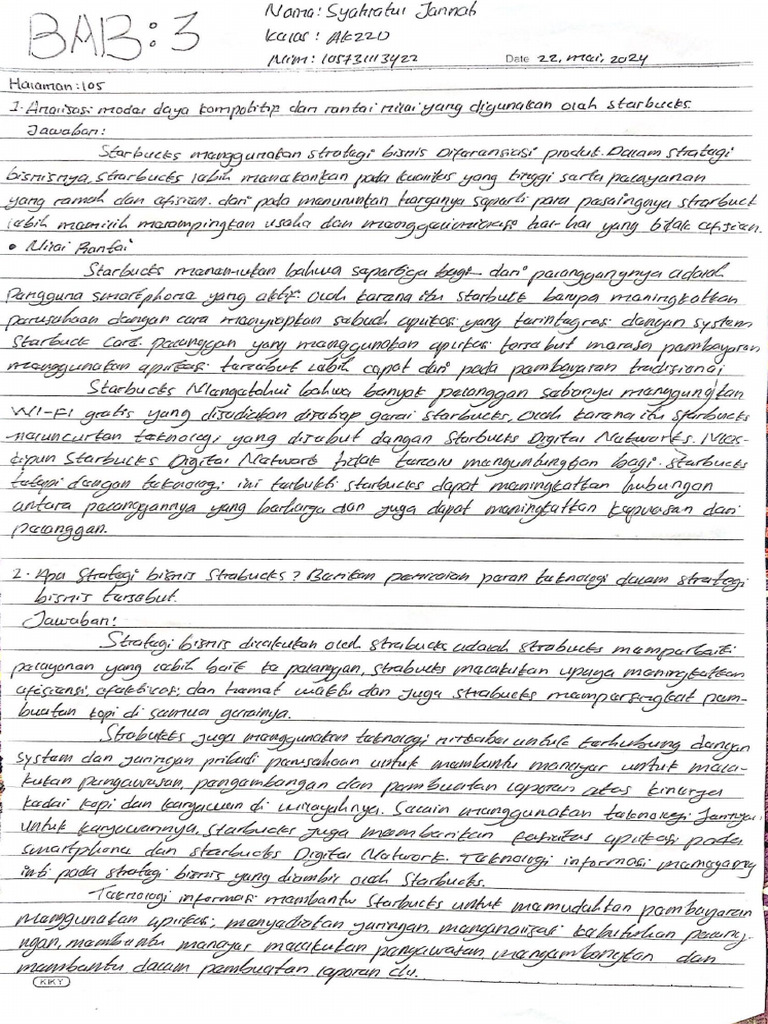 BAB : 3
Nama : Syahratul Jannah
Kelas : AK22D
Nim : 105731113422
Date 22, mei, 2024
Halaman : 105
1. Analisasi model daya kompetitip dan rantai nilai yang digunakan oleh starbucks.
Jawaban :
Starbucks menggunakan strategi bisnis Diferensiasi produk. Dalam strategi
bisnisnya, strarbucks lebih menekankan pada kualitas yang tinggi serta pelayanan
yang ramah dan efisien. dari pada menurunkan harganya seperti para pesaingnya strarbuck
lebih memilih merampingkan usaha dan mengeliminasi hal-hal yang tidak efisien.
• Nilai Rantai
Starbucks menemukan bahwa sepertiga bagi dari pelanggangnya adalah
Pengguna smartphone yang aktif. Oleh karena itu starbuck berupa meningkatkan
perusahaan dengan cara menyiapkan sebuah aplikasi yang terintegrasi dengan system
Starbuck Card. pelanggan yang menggunakan aplikasi tersebut merasa pembayaran
menggunakan aplikasi tersebut lebih cepat dari pada pembayaran tradisional
Starbucks Mengetahui bahwa banyak pelanggan sebanya menggunakan
WI-FI gratis yang disediakan disetiap gerai starbucks, Oleh karena itu starbucks
meluncurkan teknologi yang disebut dengan Starbucks Digital Networks. Mes-
kipun Starbucks Digital Network tidak terlalu menguntungkan bagi starbucks
tetapi dengan teknologi ini terbukti starbucks dapat meningkatkan hubungan
antara pelanggannya yang berharga dan juga dapat meningkatkan kepuasan dari
pelanggan.
2. Apa Strategi bisnis Strabucks ? Berikan penilaian peran teknologi dalam strategi
bisnis tersebut.
Jawaban :
Strategi bisnis dilakukan oleh strabucks adalah strabucks memperbaiki
pelayanan yang lebih baik ke pelanggan, strabucks melakukan upaya meningkatkan
efisiensi, efektivas, dan hemat waktu dan juga strabucks mempersingkat pem-
buatan kopi di semua gerainya.
Strabukks juga menggunakan teknologi nirkabel untuk terhubung dengan
system dan jaringan pribadi perusahaan untuk membantu manajer untuk mela-
kukan pengawasan, pengambangan dan pembuatan laporan atas kinerja
kedai kopi dan karyawan di wilayahnya. Selain menggunakan teknologi Jannya
untuk karyawannya, starbucks juga memberikan fasilitas aplikasi pada
smartphone dan starbucks Digital Network. Teknologi informasi memegang
inti pada strategi bisnis yang diambil oleh Starbucks.
Teknologi informasi membantu Starbucks untuk memudahkan pembayaran
menggunakan aplikasi, menyediakan jaringan, menganalisis kebutuhan pelang-
ngan, membantu manajer melakukan pengawasan mengambangkan dan
membantu dalam pembuatan laporan dll.
KIKY